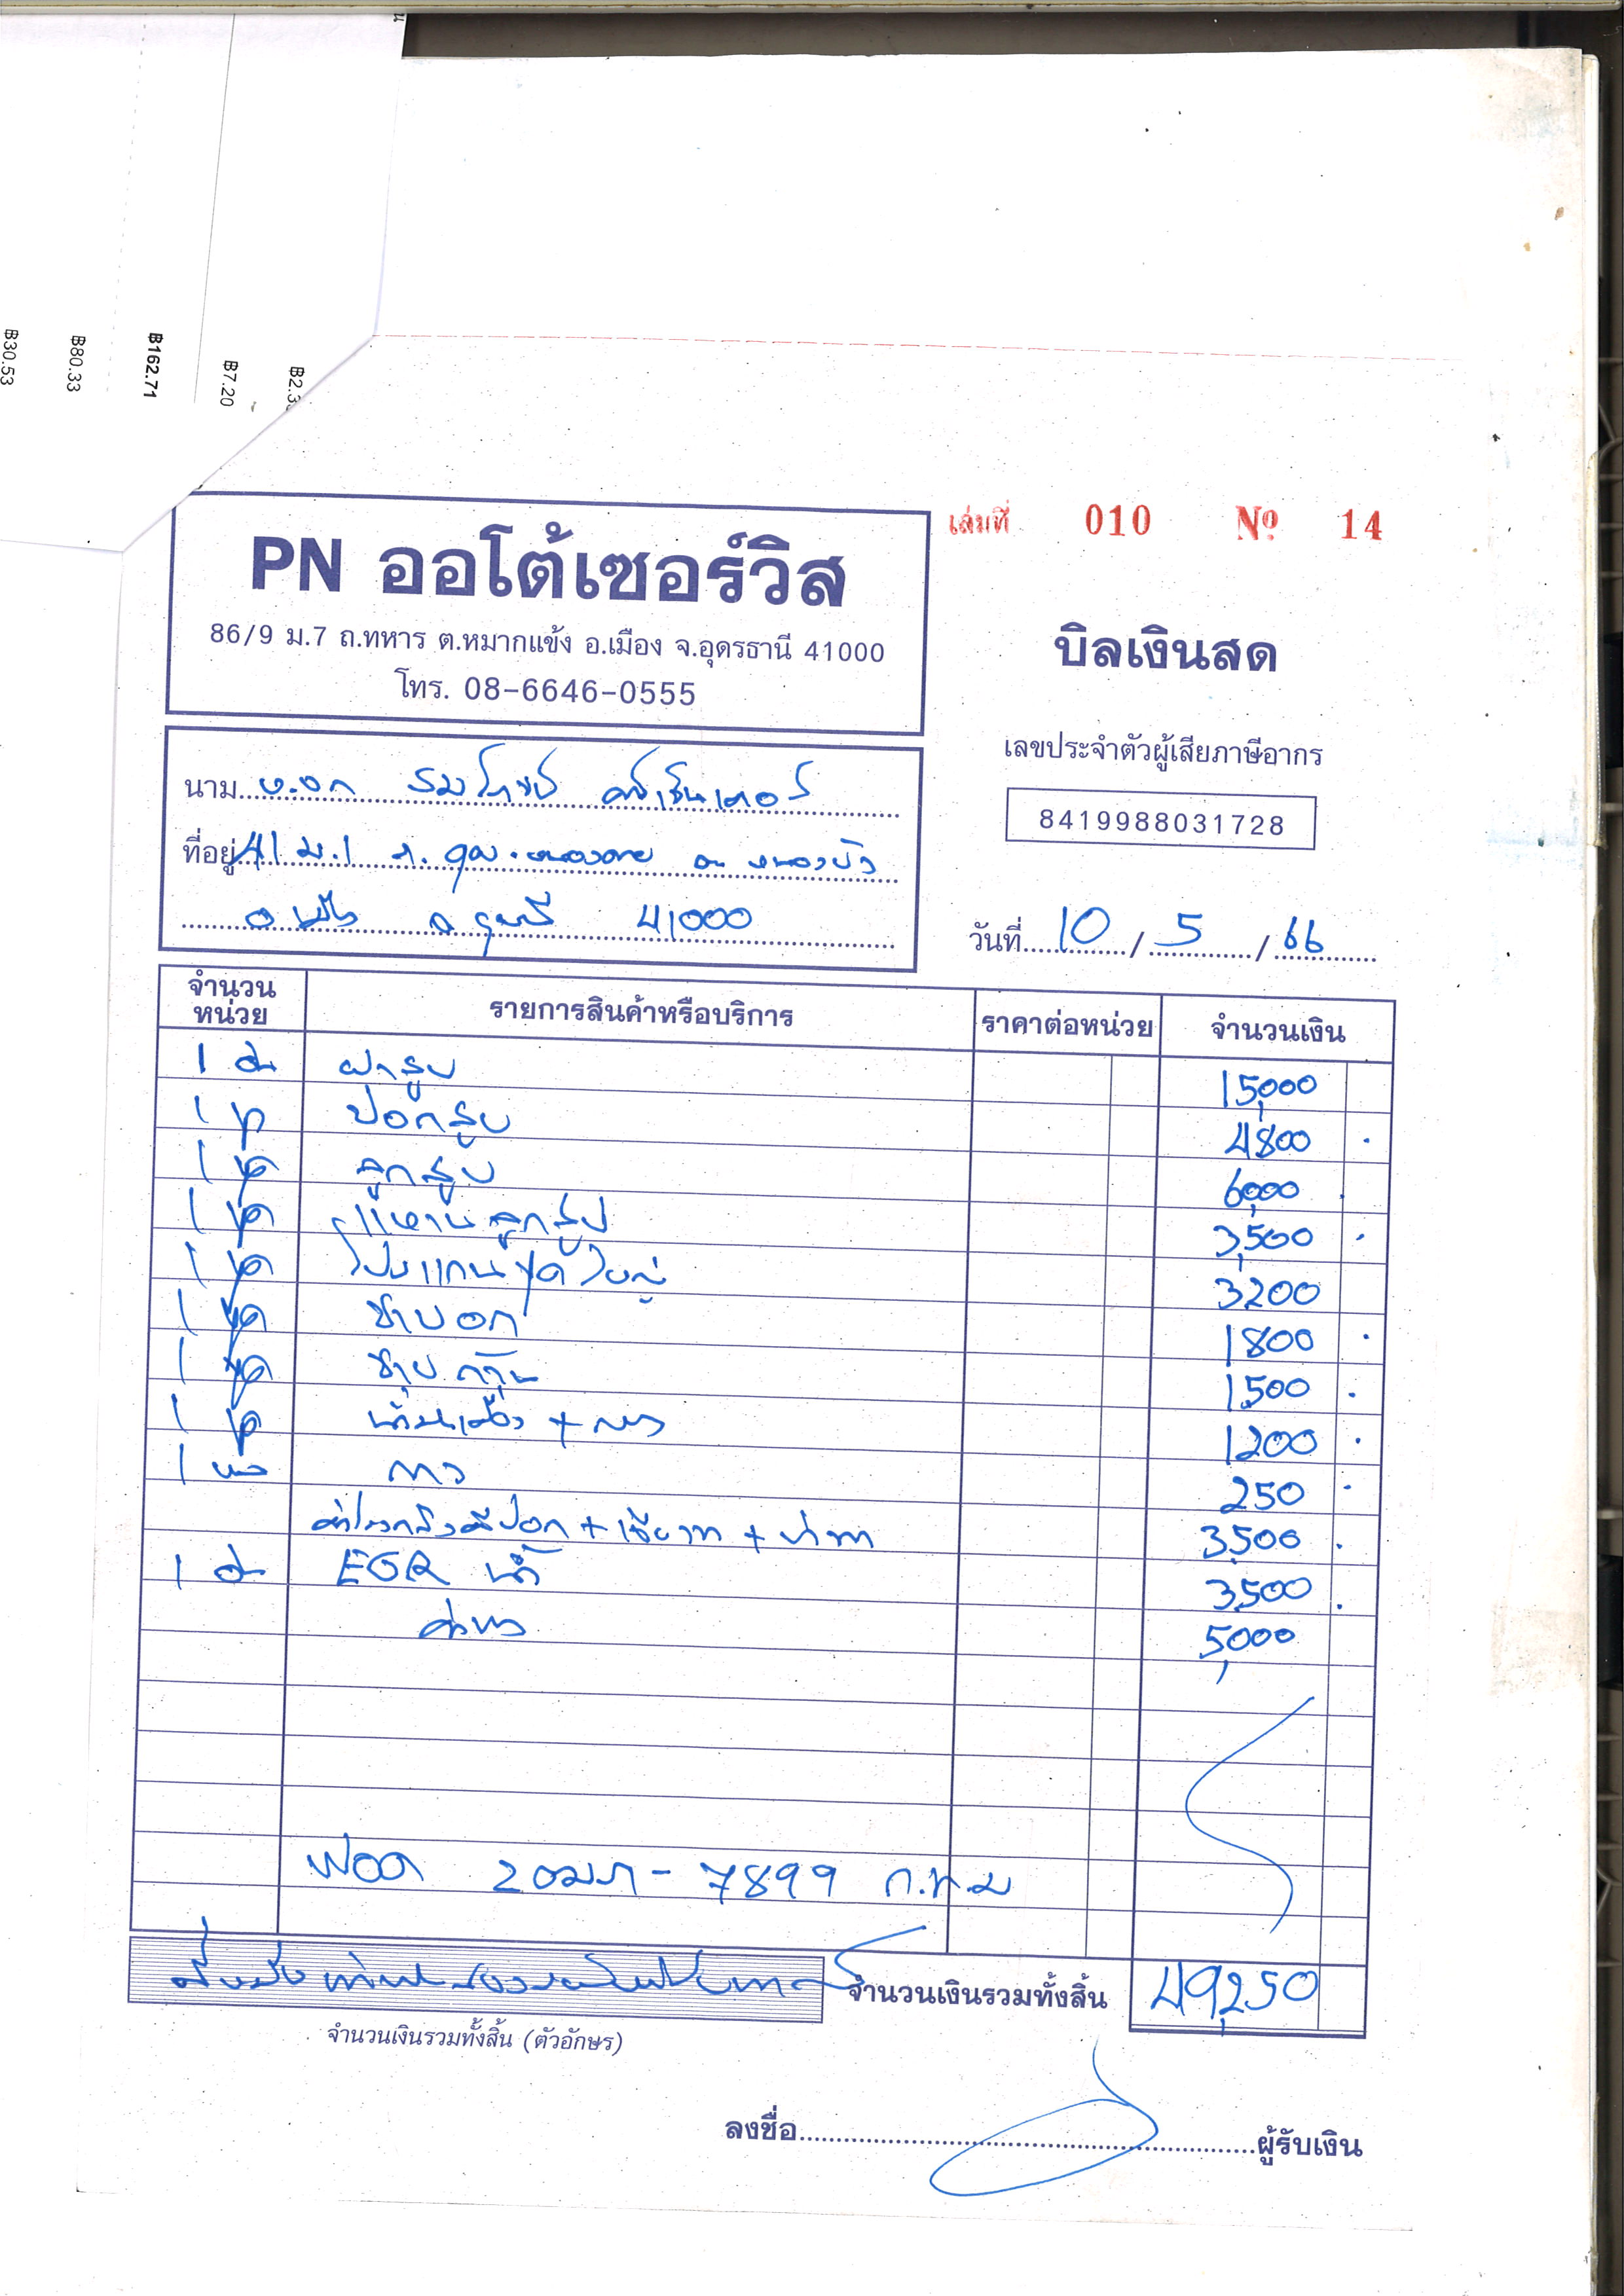 น
฿30.53
฿80.33
฿162.71
฿7.20
฿2.3
เล่มที่ 010 Nº 14
PN ออโต้เซอร์วิส
86/9 ม.7 ถ.ทหาร ต.หมากแข้ง อ.เมือง จ.อุดรธานี 41000
โทร. 08-6646-0555
บิลเงินสด
เลขประจำตัวผู้เสียภาษีอากร
8419988031728
นาม
ที่อยู่ 41 ม.1
41000
วันที่ 10 / 5 / 66
จำนวนหน่วย รายการสินค้าหรือบริการ ราคาต่อหน่วย จำนวนเงิน
1 ฝาสูบ 15,000
1 ชุด ปอกสูบ 4,800
1 ชุด ลูกสูบ 6,000
1 ชุด แหวนลูกสูบ 3,500
1 ชุด ชุดใหญ่ 3,200
1 ชุด ชาบอก 1,800
1 ชุด ชาบก้าน 1,500
1 ชุด น้ำมันเครื่อง + กรอง 1,200
1 กาว 250
3,500
1 EGR น้ำ 3,500
ค่าแรง 5,000
ฟอด 2ฒภ - 7899 ก.ท.ม
จำนวนเงินรวมทั้งสิ้น 49,250
จำนวนเงินรวมทั้งสิ้น (ตัวอักษร)
ลงชื่อ ผู้รับเงิน